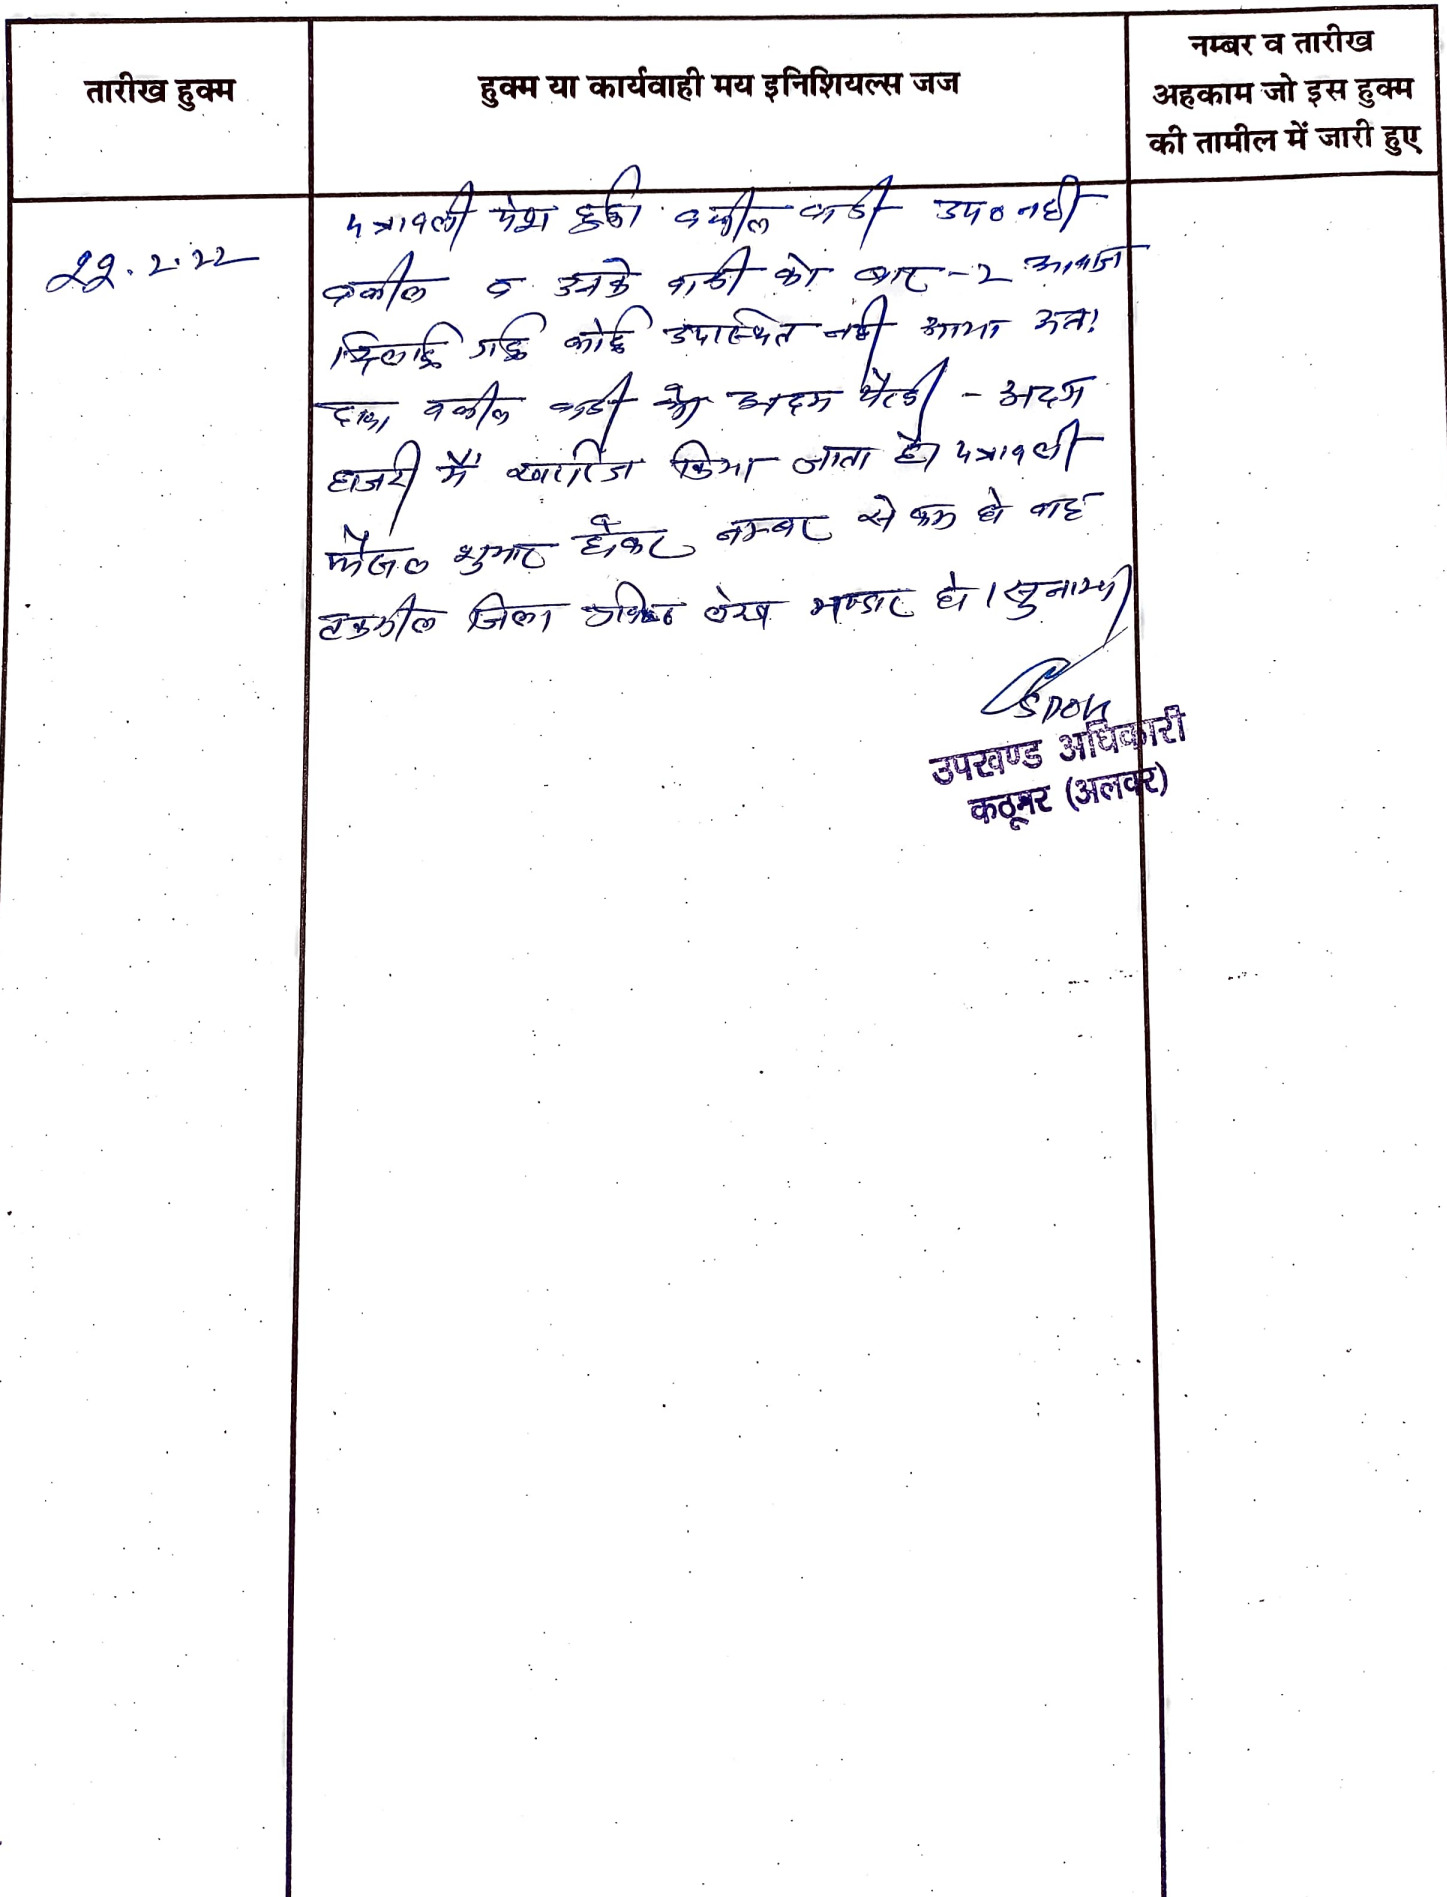 तारीख हुक्म
हुक्म या कार्यवाही मय इनिशियल्स जज
नम्बर व तारीख
अहकाम जो इस हुक्म
की तामील में जारी हुए
22.2.22
पत्रावली पेश हुई। वकील वादी उप० नही
वकील व उनके वादी को बार-2 आवाज
दिलाई गई कोई उपस्थित नही आया अत:
दावा वकील वादी को अदम पैरवी - अदम
हाजरी में खारिज किया जाता है। पत्रावली
फैसल शुमार होकर नम्बर से कम हो बाद
तकमील जिला लेख भण्डार हो।
SDOK
उपखण्ड अधिकारी
कठूमर (अलवर)